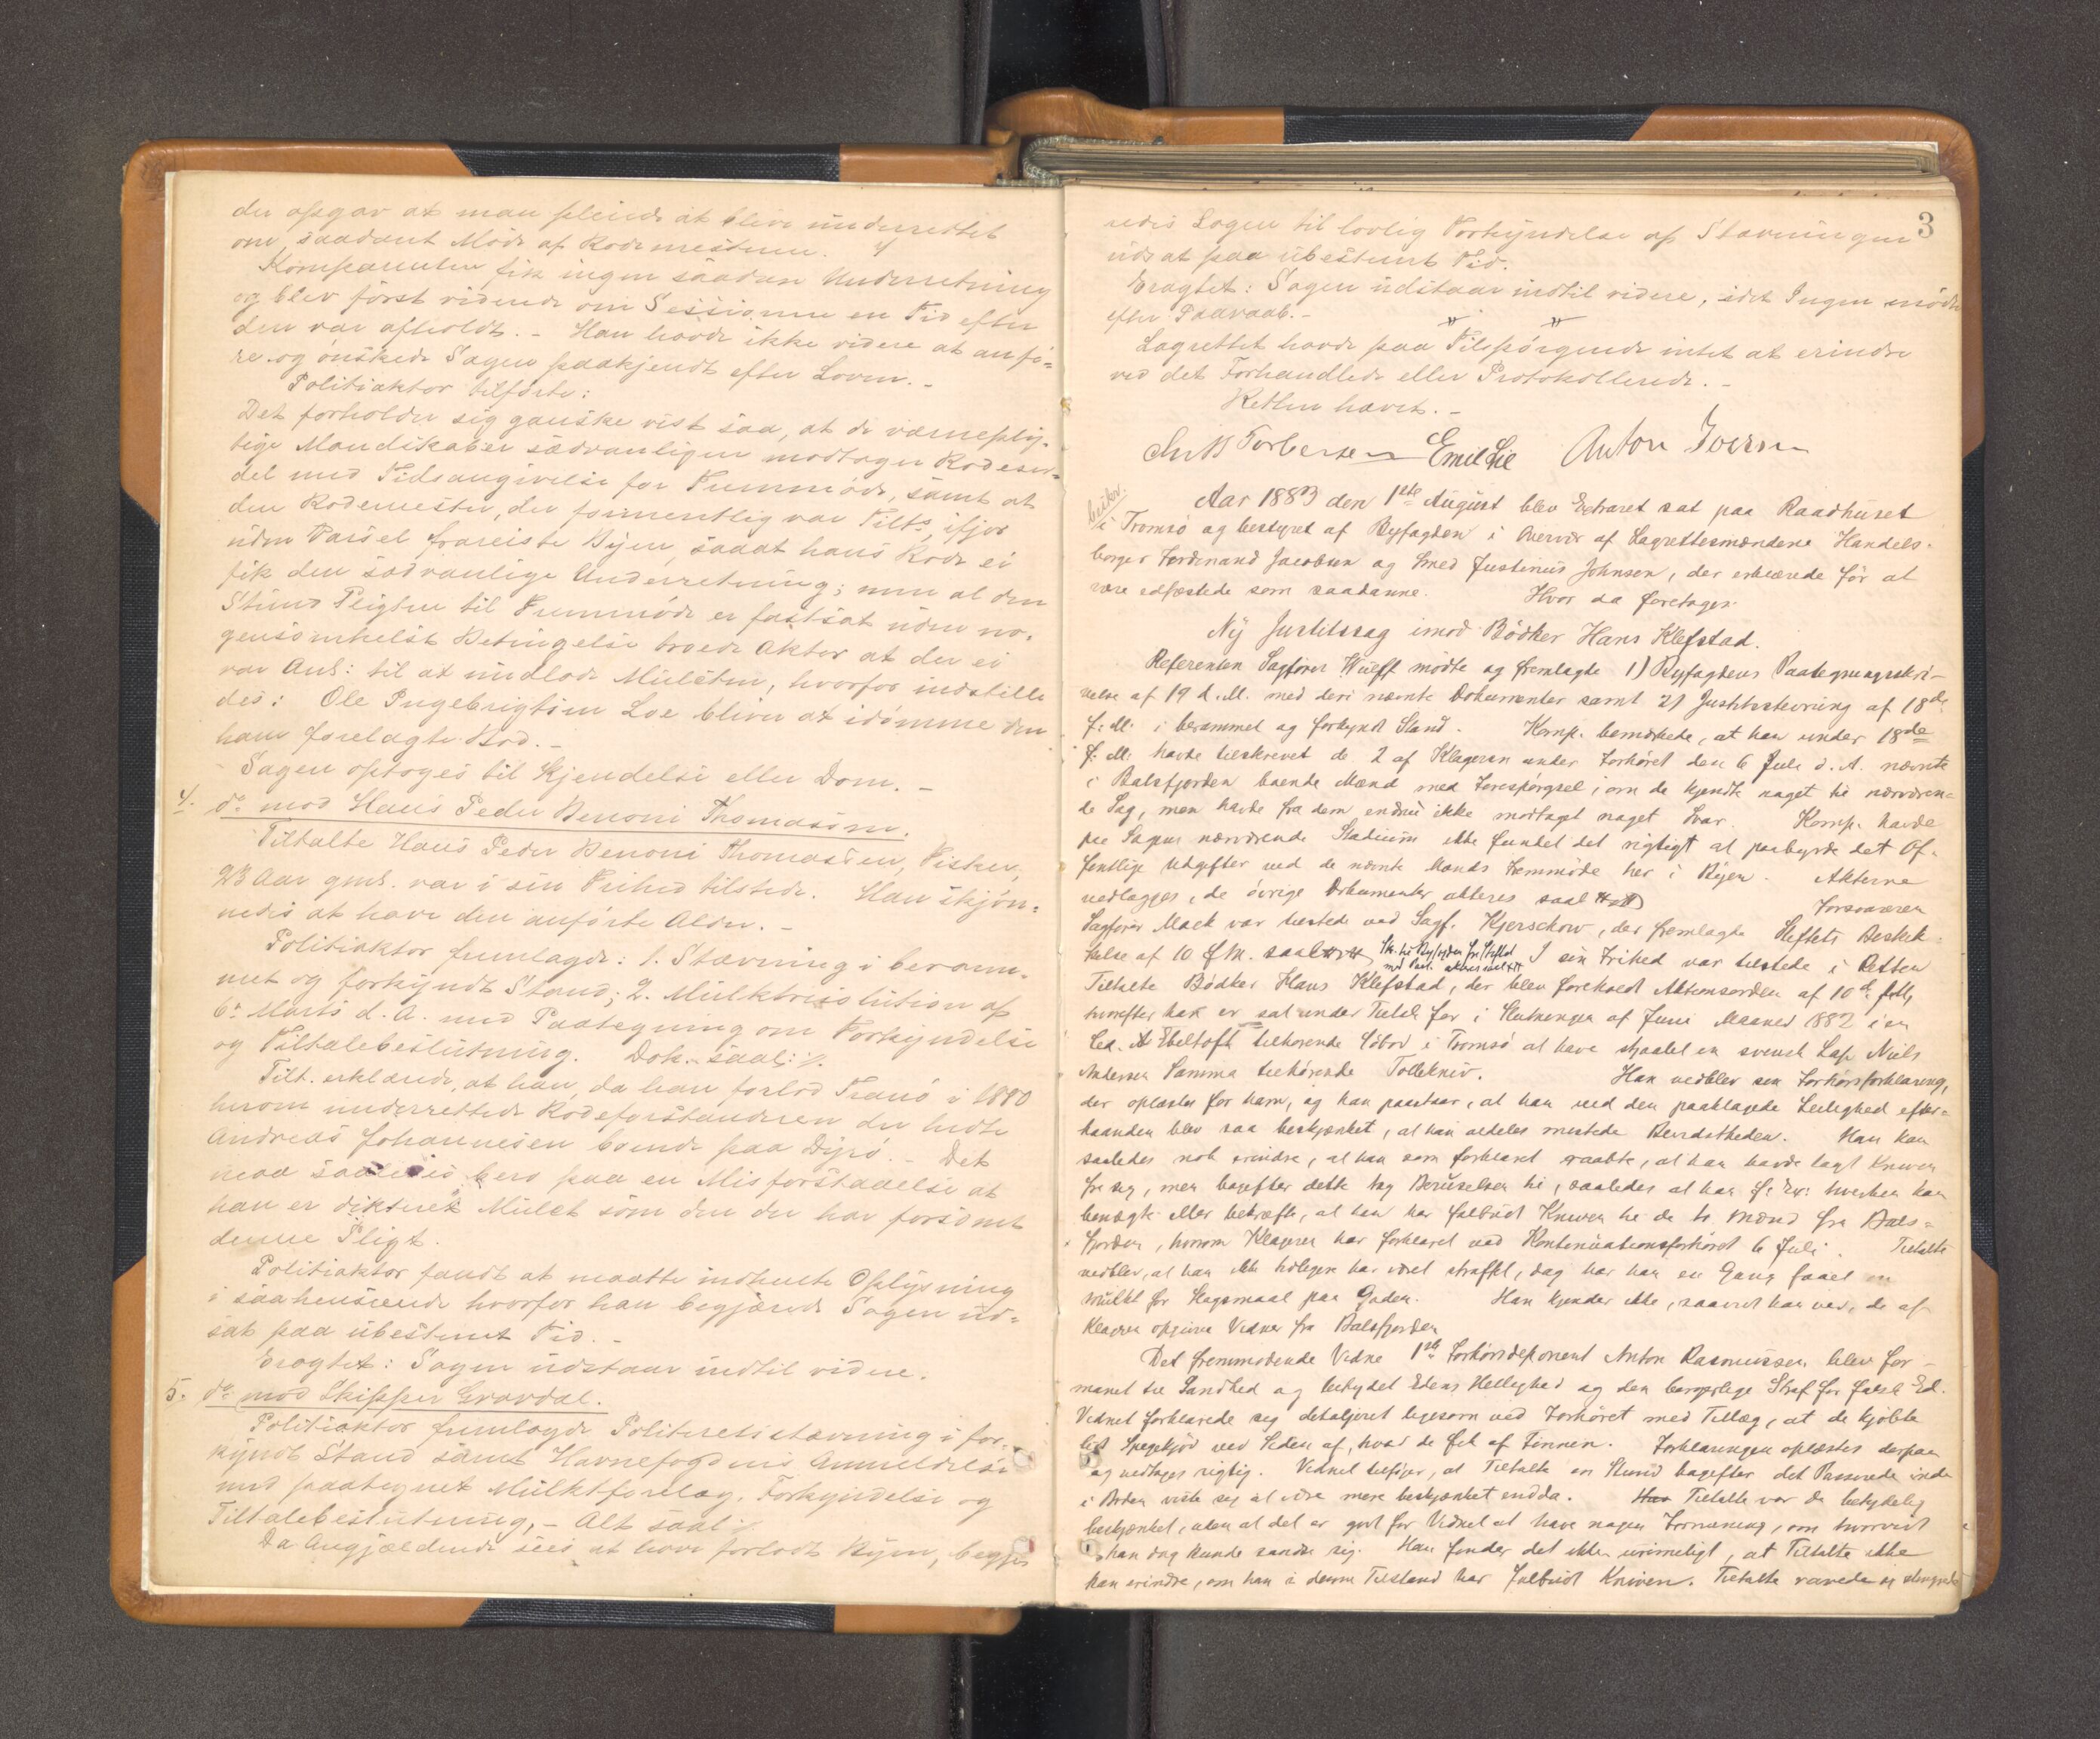 der opgav at man pleiede at blive underrettet
om saadant Møde af Rodemesteren.
Komparenten fik ingen saadan Underretning
og blev først vidende om Sessionen en Tid efter
den var afholdt. – Han havde ikke videre at anfø=
re og ønskede Sagen paakjendt efter Loven. –
Politiaktor tilførte:
Det forholder sig ganske vist saa, at de værneplig-
tige Mandskaber sædvanligen modtager Rodesed=
del med Tidsangivelse for Fremmøde, samt at
den Rodemester, der formentlig var Tilts, ifjor
uden Varsel frareiste Byen, saaat hans Rode ei
fik den sædvanlige Underretning; men al den
Stund Pligten til Fremmøde er fastsat uden no-
gensomhelst Betingelse troede Aktor at der ei
var Anl: til at undlade Mulcten, hvorfor indstille
des: Ole Ingebrigtsen Loe bliver at idømme den
ham forelagte Bod. –
Sagen optoges til Kjendelse eller Dom. –
4. do mod Hans Peder Benoni Thomassen.
Tiltalte Hans Peder Benoni Thomassen, Fisker,
23 Aar gml. var i sin Frihed tilstede. Han skjøn=
nedes at have den anførte Alder. –
Politiaktor fremlagde: 1. Stævning i beram-
met og forkyndt Stand; 2. Mulktresolution af
6te Marts d. A. med Paategning om Forkyndelse
og Tiltalebeslutning. Dok. saal: ٪.
Tilt. erklærede, at han, da han forlod Tranø i 1880
herom underrettede Rodeforstanderen der hedte
Andreas Johannesen boende paa Dyrø. – Det
maa saaledes bero paa en Misforstaaelse at
han er dikteret Mulct som den der har forsømt
denne Pligt.
Politiaktor fandt at maatte indhente Oplysning
i saahenseende hvorfor han begjærede Sagen ud=
sat paa ubestemt Tid. –
Eragtet: Sagen udstaar indtil videre.
5. do mod Skipper Gravdal.
Politiaktor fremlagde Politiretsstævning i for-
kyndt Stand samt Havnefogdens Anmeldelse
med paategnet Mulktforelæg, Forkyndelse og
Tiltalebeslutning, – Alt saal
Da Angjældende sees at have forladt Byen, begjæ
3
redes Sagen til lovlig Forkyndelse af Stævningen
udsat paa ubestemt Tid.
Eragtet: Sagen udstaar indtil videre, idet Ingen mødte
efter Paaraab. –
Lagrettet havde paa Tilspørgende intet at erindre
ved det Forhandlede eller Protokollerede. –
Retten hævet. –
Torbersen Emil Lie Anton Iversen
Aar 1883 den 1ste August blev Extraret sat paa Raadhuset
i Tromsø og bestyret af Byfogden i Overvær af Lagrettesmændene Handels-
borger Ferdinand Jacobsen og Smed Justinus Johnsen, der erklærede før at
være edfæstede som saadanne. Hvor da foretages:
Ny Justitssag imod Bødker Hans Klefstad.
Referenten Sagfører Wulff mødte og fremlagte 1) Byfogdens Paategningsskri-
velse af 19 d. M. med deri nævnte Dokumenter samt 2) Justitsstevning af 18de
f. M. i berammet og forkyndt Stand. Komp. bemærkede, at han under 18de
f. M. havde tilskrevet de 2 af Klageren under Forhøret den 6 Juli d. A. nævnte
i Balsfjorden boende Mænd med Forespørgsel, om de kjendte noget til nærværen=
de Sag, men havde fra dem endnu ikke modtaget noget Svar. Komp. havde
paa Sagens nærværende Stadium ikke fundet det rigtigt at paabyrde det Of-
fentlige Udgifter ved de nævnte Mænds Fremmøde her i Byen. Akterne
vedlægges, de øvrige Dokumenter akteres saal Forsvareren
Sagfører Mack var tilstede ved Sagf. Kjerschow, der fremlagde Stiftets Beskik=
kelse af 10 f. M. saal Sk. til Byfogden fra Stiftet
med Paat. akteres saal I sin Frihed var tilstede i Retten
Tiltalte Bødker Hans Klefstad, der blev foreholdt Aktionsordren af 10de f. M.,
hvorefter han er sat under Tiltale for i Slutningen af Juni Maaned 1882 i en
Ebeltoft tilhørende Søbod i Tromsø at have stjaalet en svensk Lap Niels
Andersen Samma tilhørende Tollekniv. Han vedblev sin Forhørsforklaring,
der oplæstes for ham, og han paastaar, at han ved den paaklagede Leilighed efter=
haanden blev saa beskjænket, at han aldeles mistede Bevidstheden. Han kan
saaledes nok erindre, at han som forklaret raabte, at han havde lagt Kniven
fra sig, men bagefter dette tog Beruselsen til, saaledes at han f. Ex. hverken kan
benægte eller bekræfte, at han har falbudt Kniven til de to Mænd fra Bals=
fjorden, hvorom Klageren har forklaret ved Kontinuationsforhøret 6 Juli. Tiltalte
vedblev, at han ikke tidligere har været straffet, dog har han en Gang faaet en
Mulkt for Slagsmaal paa Gaden. Han kjender ikke, saavidt han ved, de af
Klageren opgivne Vidner fra Balsfjorden
Det fremmødende Vidne 1ste Forhørsdeponent Anton Rasmussen blev for-
manet til Sandhed og betydet Edens Hellighed og den borgerlige Straf for falsk Ed.
Vidnet forklarede sig detaljeret ligesom ved Forhøret med Tillæg, at de kjøbte
lidt Spegekjød ved Siden af, hvad de fik af Finnen. Forklaringen oplæstes derpaa
og vedtages rigtig. Vidnet tilføier, at Tiltalte en Stund bagefter det Passerede inde
i Boden viste sig at være mere beskjænket endda. Tiltalte var da betydelig
beskjænket, uden at det er godt for Vidnet at have nogen Formening, om hvorvidt
han dog kunde sandse sig. Han finder det ikke urimeligt, at Tiltalte ikke
kan erindre, om han i denne Tilstand har falbudt Kniven. Tiltalte ravede og slingrede